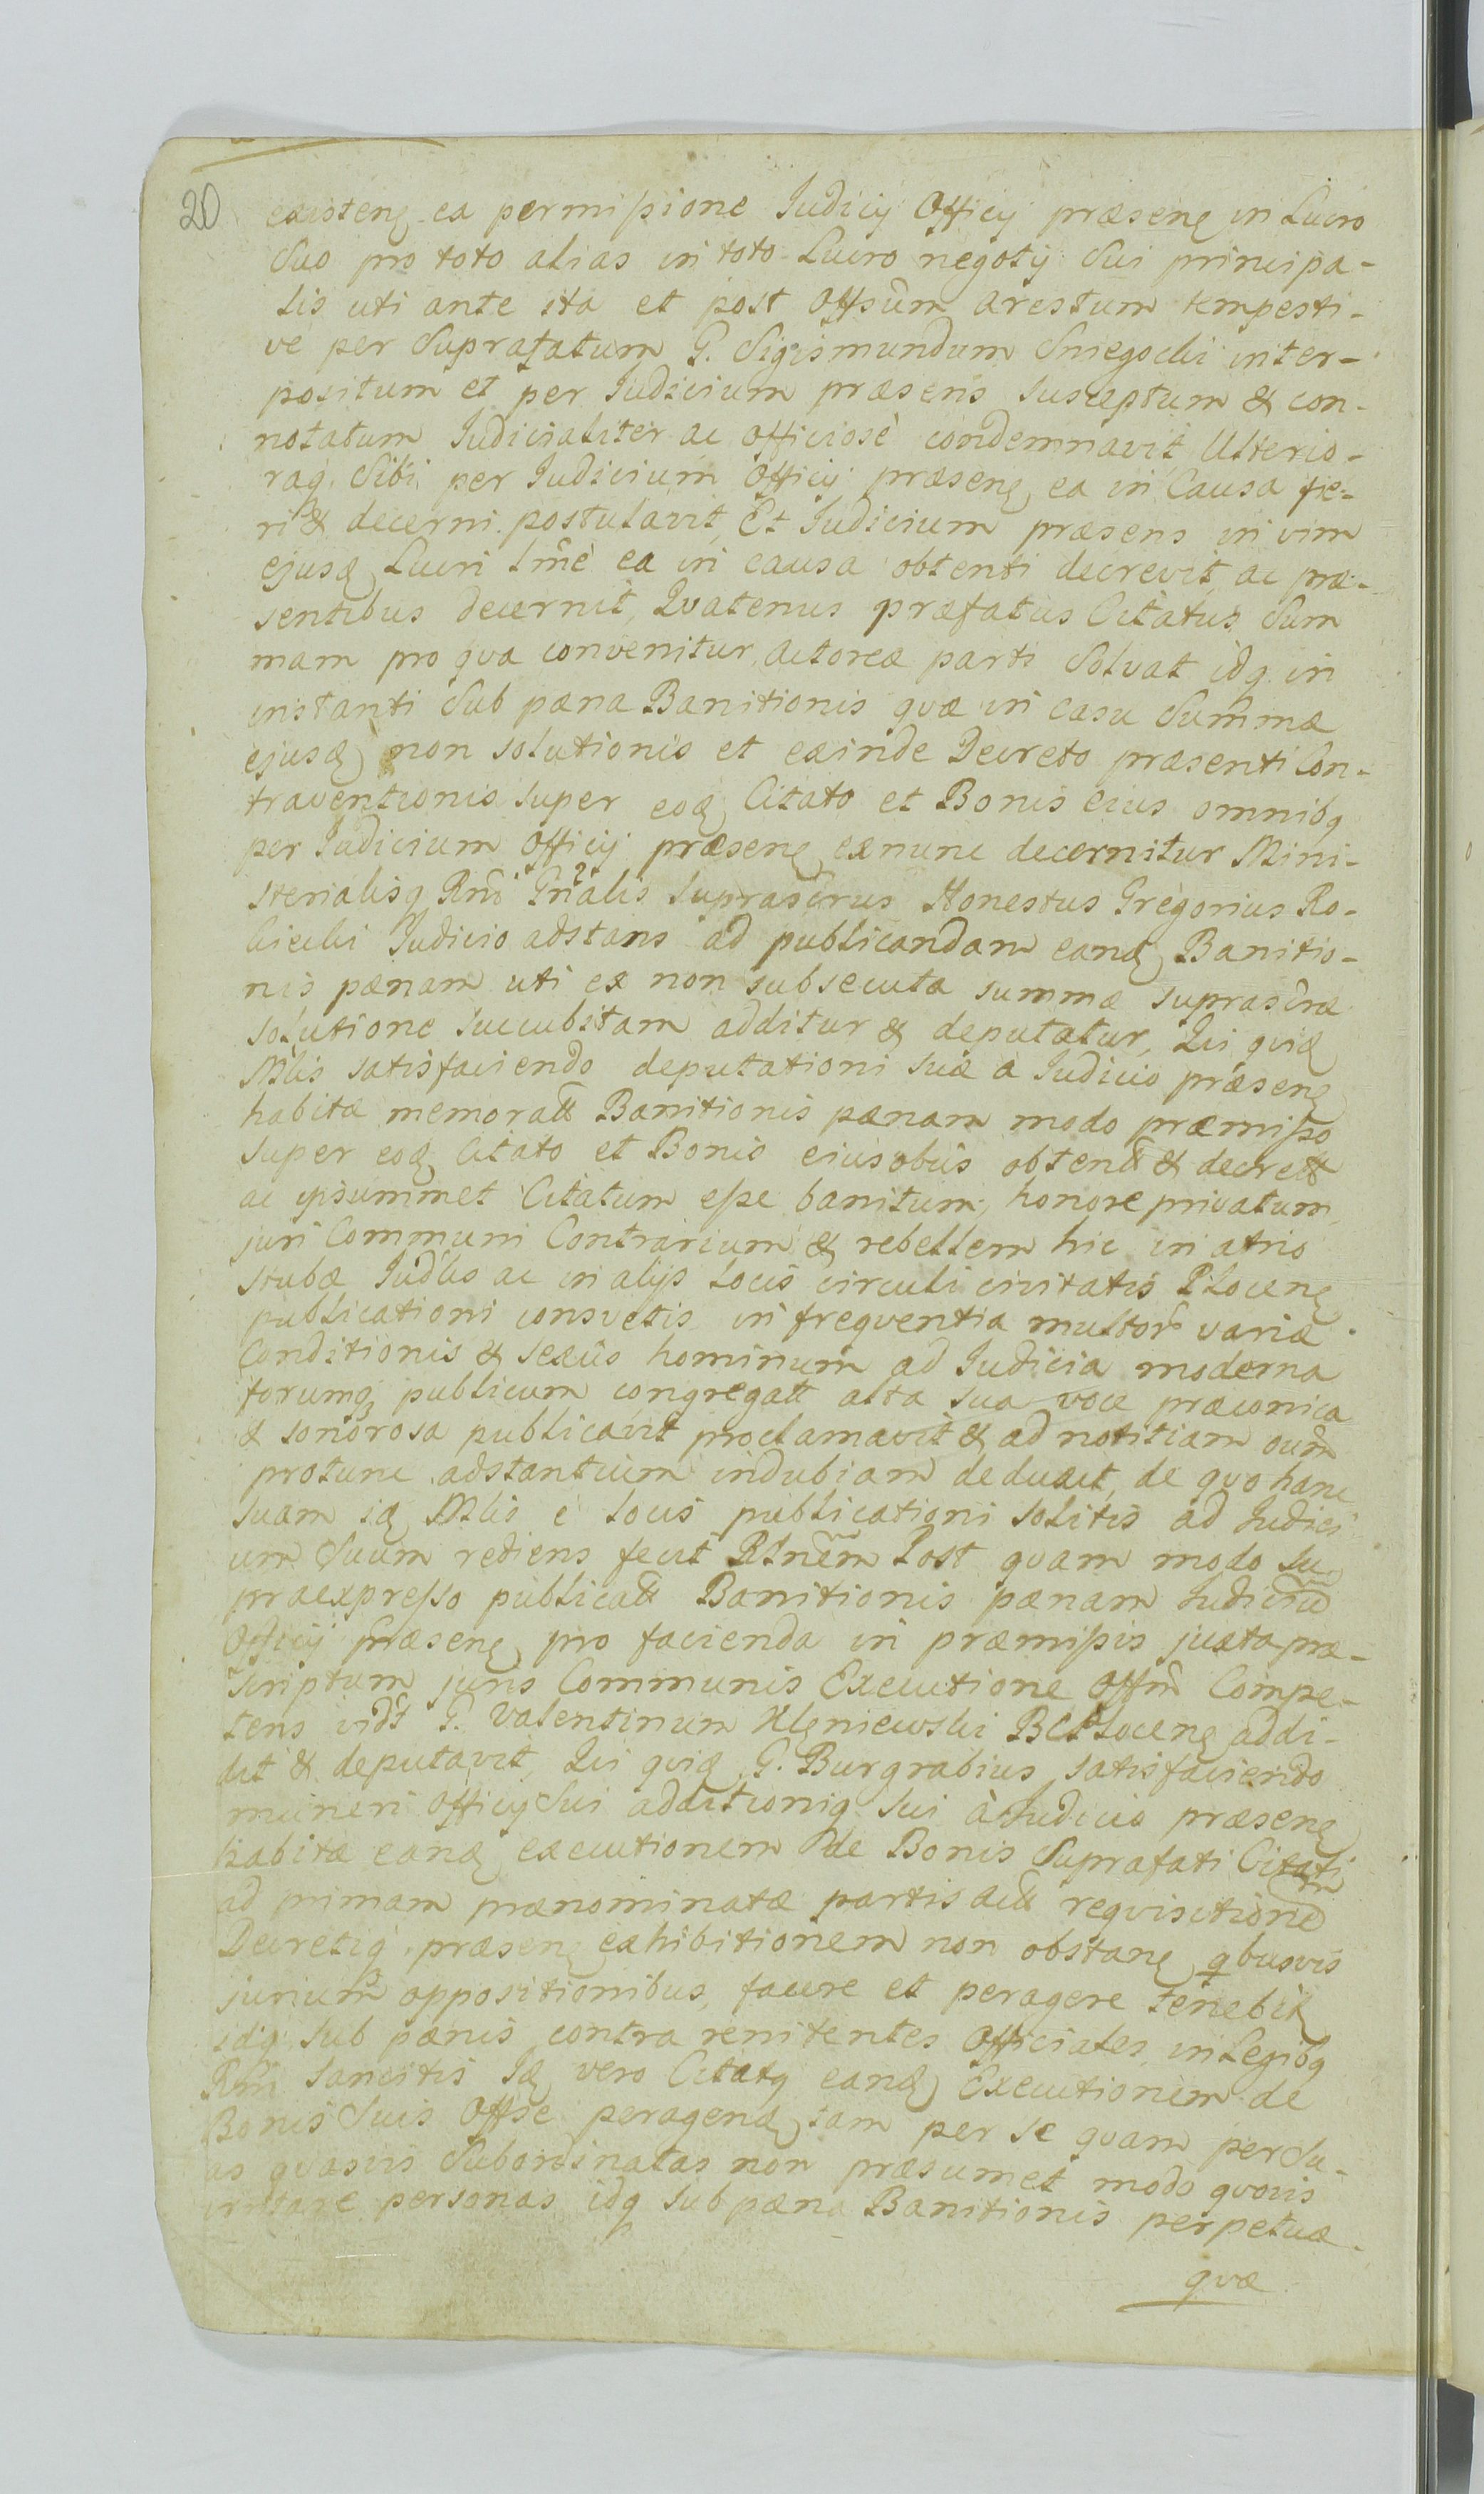 20
existenȩ ea permissione Iudicij Officij præsenȩ in Lucro
Suo pro toto alias in toto Lucro negotij Sui principa-
lis uti ante ita et post Offsum arestum tempesti-
ve per Suprafatum G. Sigismundum Sniegocki inter-
positum et per Iudicium præsens susceptum & con-
notatum Iudicialiter ac officiosè condemnavit, Ulterio-
raq Sibi per Iudicium Officij præsenȩ ea in Causa fie-
ri & decerni postulavit, Et Iudicium præsens in vim
ejusȡ Lucri lmē ea in causa obtenti decrevit, ac præ-
sentibus decernit, Qvatenus præfatus Citatus Sum
mam pro qva convenitur, Actoreæ parti Solvat idq in
instanti Sub pæna Banitionis qvæ in casu Summæ
ejusȡ non solutionis et exinde Decreto præsenti Con-
traventionis super eoȡ Citato et Bonis eius omnibq
per Iudicium Officij præsenȩ exnunc decernitur Mini-
sterialisq Rni Gnalis suprascrus Honestus Gregorius Ro-
cicki Iudicio adstans ad publicandam eanȡ Banitio-
nis pænam uti ex non subsecuta summæ suprascræ
solutione succubitam additur & deputatur, Qui qviȡ
Mlis satisfaciendo deputationi suæ a Iudicio præsenȩ
habitæ memoratt Banitionis pænam modo præmisso
super eoȡ Citato et Bonis eius obiis obtentt & decrett
ac ipsummet Citatum esse banitum, honore privatum,
juri Communi Contrarium & rebellem hic in atrio
stubæ Iudlis ac in alijs Locis circuli civitatis Plocenȩ
publicationi consvetis in freqventia multor variæ
Conditionis & sexûs hominum ad Iudicia moderna
forumq publicum congregatt alta sua voce præconica
& sonorosa publicavit proclamavit & ad notitiam oum
protunc adstantium indubiam deduxit, de qvo hanc
suam iȡ Mlis e locis publicationi solitis ad Iudici
um Suum rediens fecit Rlnem Post qvam modo su
praexpresso publicatt Banitionis pænam Iudicium
Officij præsenȩ pro facienda in præmissis juxta præ-
scriptum juris Communis Executione Offm Compe-
tens vidt G. Valentinum Kleniewski BCPlocenȩ addi-
dit & deputavit, Qui qviȡ G. Burgrabius satisfaciendo
muneri Officij Sui additioniq sui à Iudicio præsenȩ
habitæ eanȡ executionem de Bonis Suprafati Citati
ad primam prænominatæ partis actt reqvisitionem
Decretiq præsenȩ exhibitionem non obstanȩ qbusvis
jurium oppositionibus, facere et peragere tenebit
idq sub pænis contra renitentes Officiales in Legibq
Rni sancitis Iȡ vero Citatq eanȡ Executionem de
Bonis Suis Offse peragenȡ tam per se qvam per Su-
as qvasvis Subordinatas non præsumet modo qvovis
irritare personas idq sub pæna Banitionis perpetuæ
qvæ